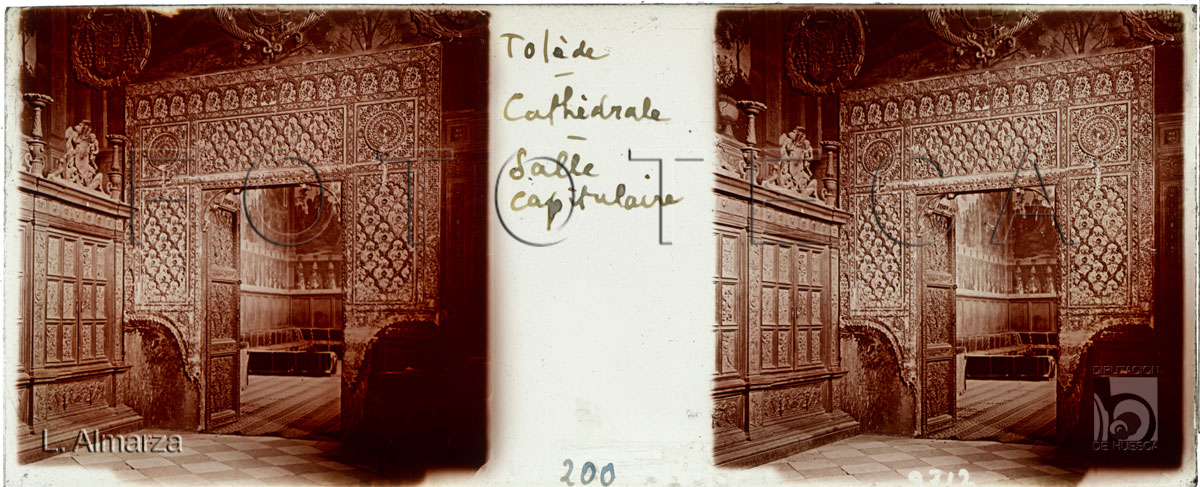 Tolède
Cathédrale
Salle
capitulaire
FOTOTECA
L. Almarza
200
DIPUTACION
DE HUESCA